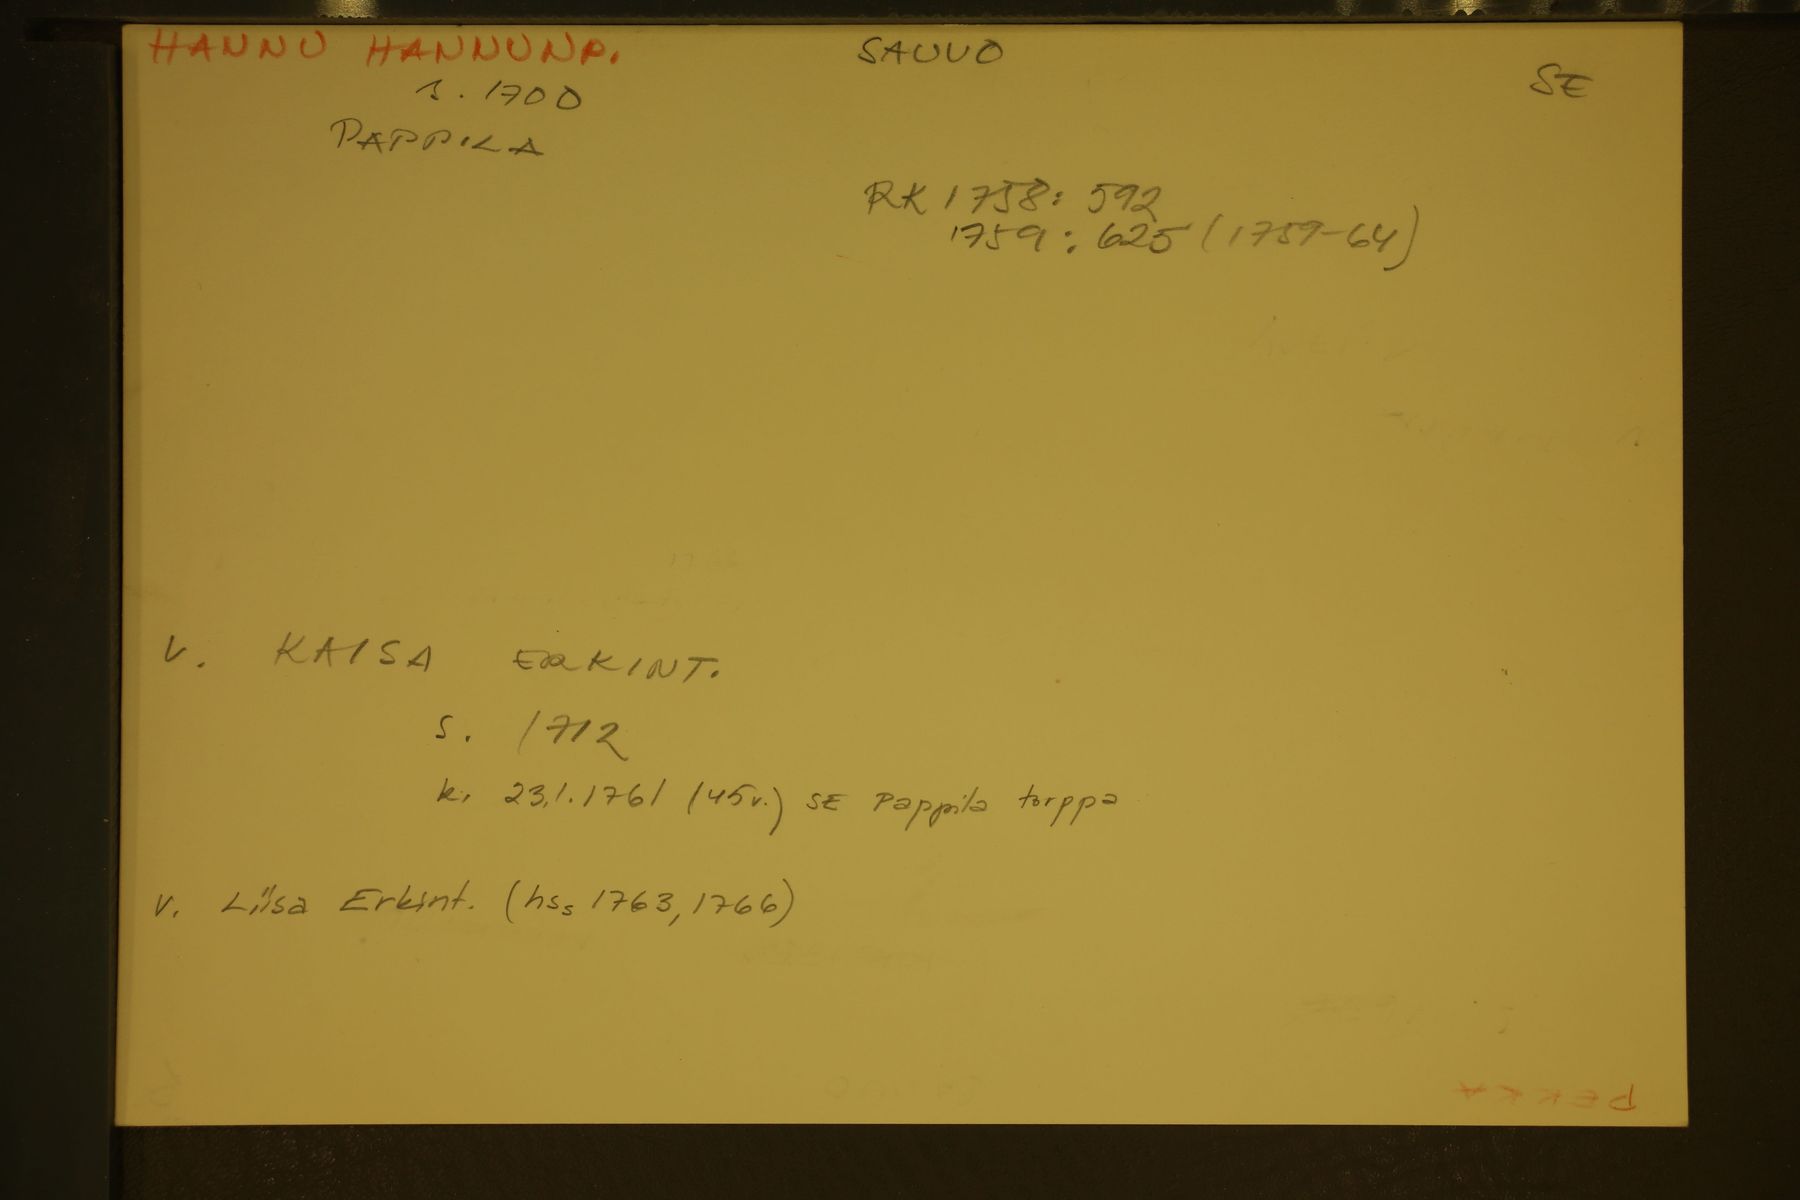 HANNU HANNUNP.
SAUVO
SE
s. 1700
PAPPILA
RK 1758: 592
1759: 625 (1759-64)
V. KAISA ERKINT.
s. 1712
k. 23.1.1761 (45v.) SE Pappila torppa
V. Liisa Erkint. (hss 1763, 1766)
PEKKA